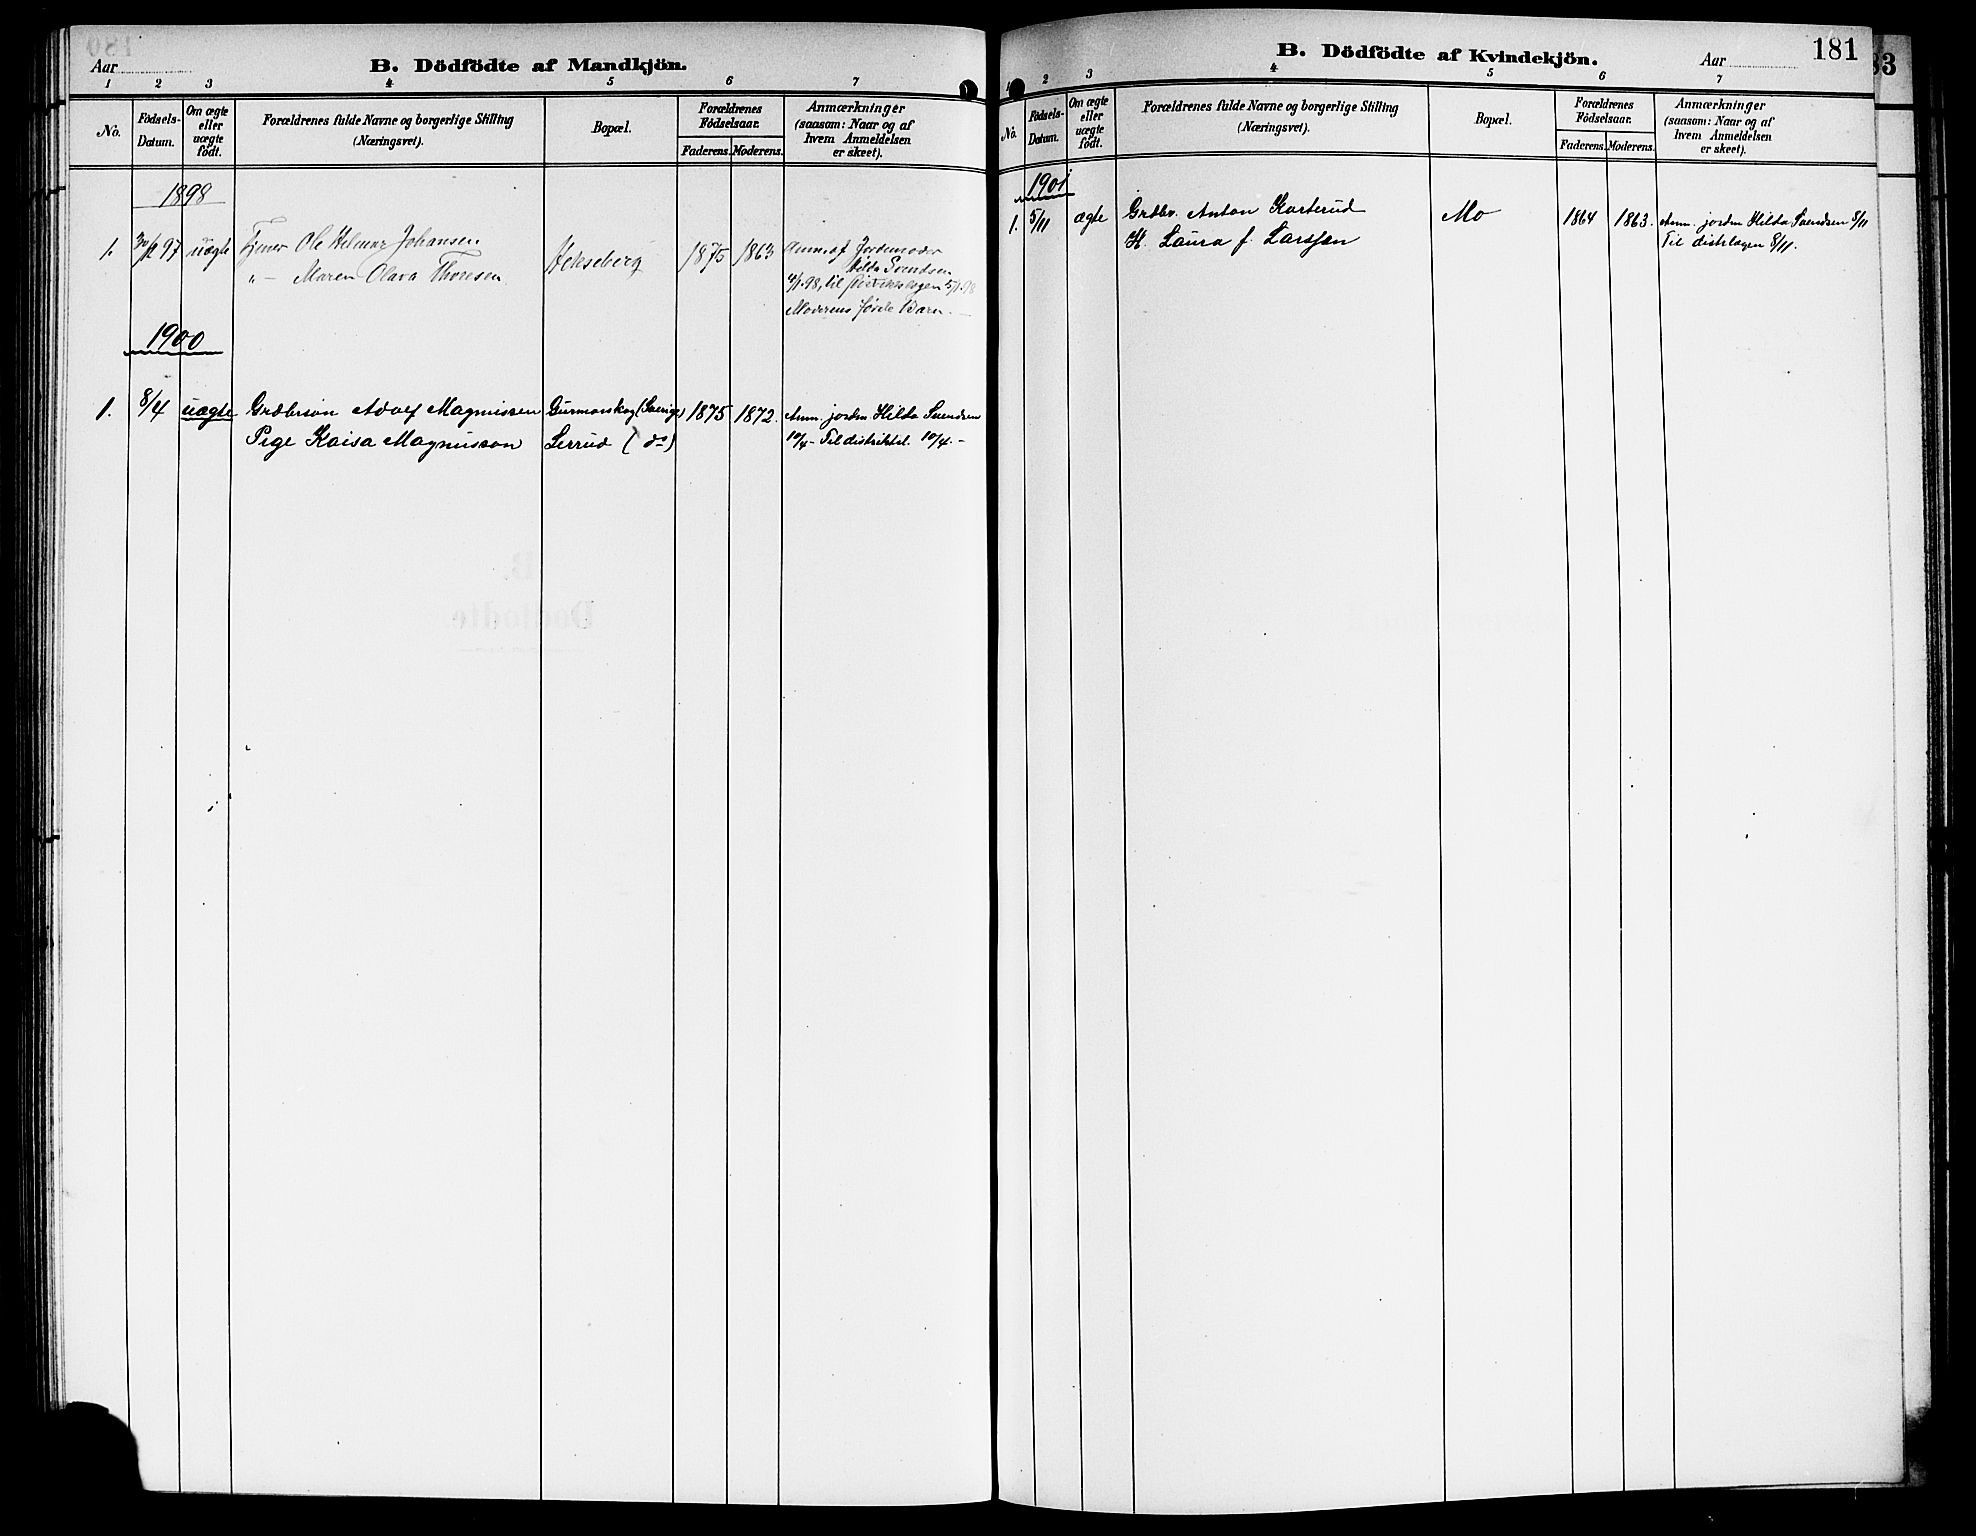 Aar
B. Dödfödte af Mandkjön.
1 2 3 4 5 6 7
No.
Födsels-
Datum.
Om ægte
eller
uægte
födt.
Forældrenes fulde Navne og borgerlige Stilling
(Næringsvei).
Bopæl.
Forældrenes
Födselsaar.
Faderens. Moderens.
Anmærkninger
(saasom: Naar og af
hvem Anmeldelsen
er skeet).
1898
1. 30/12 97 uægte Tjener Ole Helmar Johansen
" — Maren Olava Thoresen
Hekseberg 1875 1863
Anm. af Jordemoder
Hilda Svendsen
4/1 98, til 5/1 98
Moderens første Barn. —
1900
1. 8/4 uægte Gråbrson Adolf Magnussen Gurmonskog (Sverige) 1875 1872. Anm. jordm Hilda Svendsen
Pige Kaisa Magnusson Lerrud (do) 10/4 – Til distriktsl. 10/4. –
181
B. Dödfödte af Kvindekjön.
Aar
1 2 3 4 5 6 7
No.
Födsels-
Datum.
Om ægte
eller
uægte
födt.
Forældrenes fulde Navne og borgerlige Stilling
(Næringsvei).
Bopæl.
Forældrenes
Födselsaar.
Faderens. Moderens.
Anmærkninger
(saasom: Naar og af
hvem Anmeldelsen
er skeet).
1901
1. 5/11 ægte Grdbr. Anton Karterud Mo 1864 1863. Anm. jordm Hilda Svendsen 8/11
H. Laura f. Larssen Til distrlægen 8/11.
83